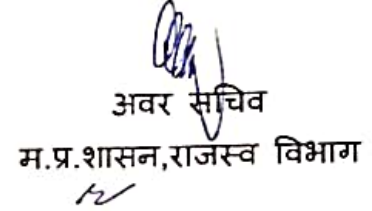 अवर सचिव
म.प्र.शासन,राजस्व विभाग